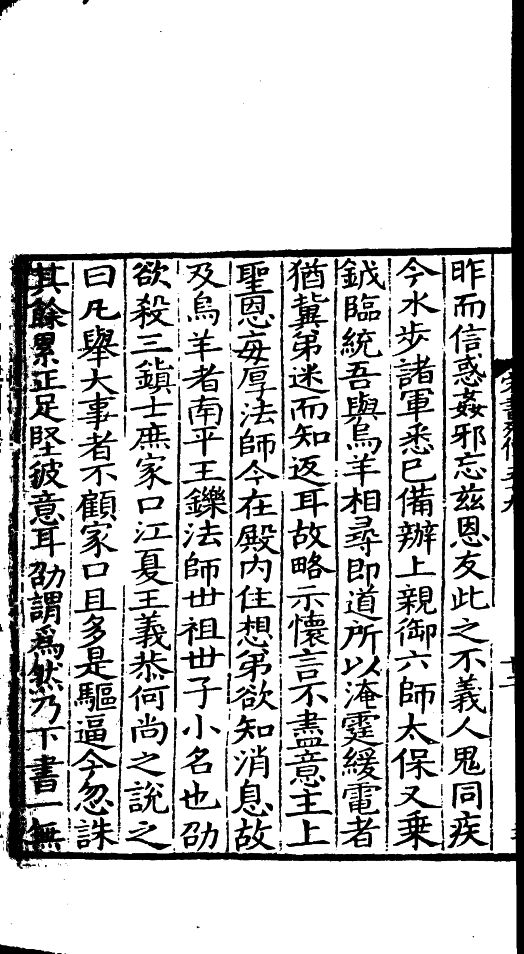 昨而信惑姦邪忘茲恩友此之不義人鬼同疾
今水步諸軍悉已備辦上親御六師太保又乗
鉞臨統吾與烏羊相尋即道所以淹霆緩電者
猶冀弟迷而知返耳故略示懷言不盡意主上
聖恩每厚法師今在殿内住想弟欲知消息故
及烏羊者南平王鑠法師世祖世子小名也劭
欲殺三鎮士庶家口江夏王義恭何尚之說之
曰凡舉大事者不顧家口且多是驅逼今忽誅
其餘累正足堅彼意耳劭謂爲然乃下書一無